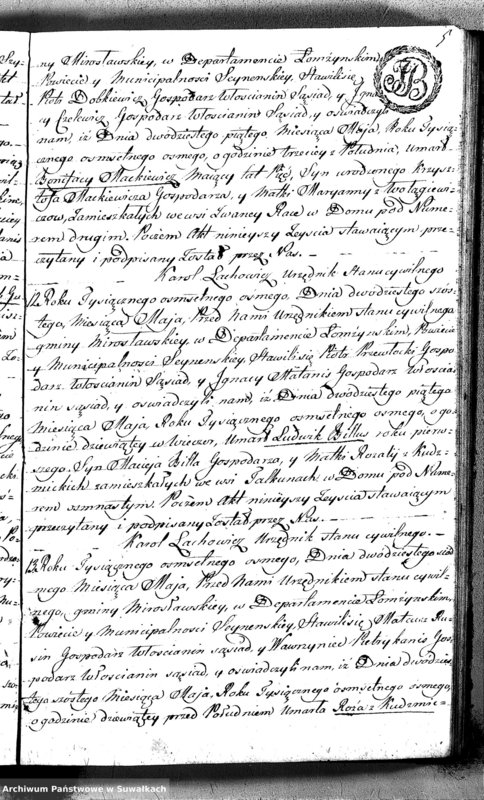 5
ny Mirosławskiey, w Departamencie Łomżynskim
Powiecie y Municipalnosci Seynenskiey, Stawilisię
Piotr Dobkiewicz Gospodarz Włoscianin Sąsiad, y Igna
cy Gospodarz Włoscianin Sąsiad, y oswiadczyli
nam, iż Dnia dwudziestego piątego Miesiąca Maja, Roku Tysią
cznego osmsetnego osmego, o godzinie trzeciey z Południa, Umarł
Bonifacy Mackiewicz Maiący lat Syn urodzonego Krzysz
tofa Mackiewicza Gospodarza, y Matki Maryanny z Wołągiewi
czow, Zamieszkałych we wsi w Domu pod Nume
rem drugim. Poczem Akt ninieyszy Zeyscia stawaiącym prze
czytany i podpisany Został przez Nas. —
Karol Lachowicz Urzędnik Stanu cywilnego
12. Roku Tysiącznego osmsetnego osmego, Dnia dwudziestego szós
tego, Miesiąca Maja, Przed Nami Urzędnikiem stanu cywilnego
gminy Mirosławskiey, w Departamencie Łomżynskim, Powiecie
y Municipalnosci Seynenskiey, Stawilisię Piotr Przewłocki Gospo
darz Włoscianin Sąsiad, y Ignacy Matanis Gospodarz Włoscia
nin sąsiad, y oswiadczyli nam, iż Dnia dwudziestego piątego
Miesiąca Maja, Roku Tysiącznego osmsetnego osmego, o go
dzinie dziewiątey w Wieczor, Umarł Ludwik Billus roku pierw
szego. Syn Macieja Billa Gospodarza, y Matki Rozalij z Kudz
mickich zamieszkałych we wsi Jałkunach w Domu pod Nume
rem osmnastym. Poczem Akt ninieyszy Zeyscia stawaiącym
przeczytany i podpisany Został przez Nas. —
Karol Lachowicz Urzędnik stanu cywilnego. —
13. Roku Tysiącznego osmsetnego osmego, Dnia dwudziestego siód
mego Miesiąca Maja, Przed Nami Urzędnikiem stanu cywil-
nego, gminy Mirosławskiey, w Departamencie Łomżynskim,
Powiecie y Municipalnosci Seynenskiey, Stawilisię Mateusz Ru
sin Gospodarz Włoscianin sąsiad, y Wawrzyniec Pietrykanis Gos
podarz Włoscianin sąsiad, y oswiadczyli nam, iż Dnia dwudzies
tego szóstego Miesiąca Maja, Roku Tysiącznego osmsetnego osmego,
o godzinie dziewiątey przed Południem Umarła Roża z Kudzmic-
Archiwum Państwowe w Suwałkach